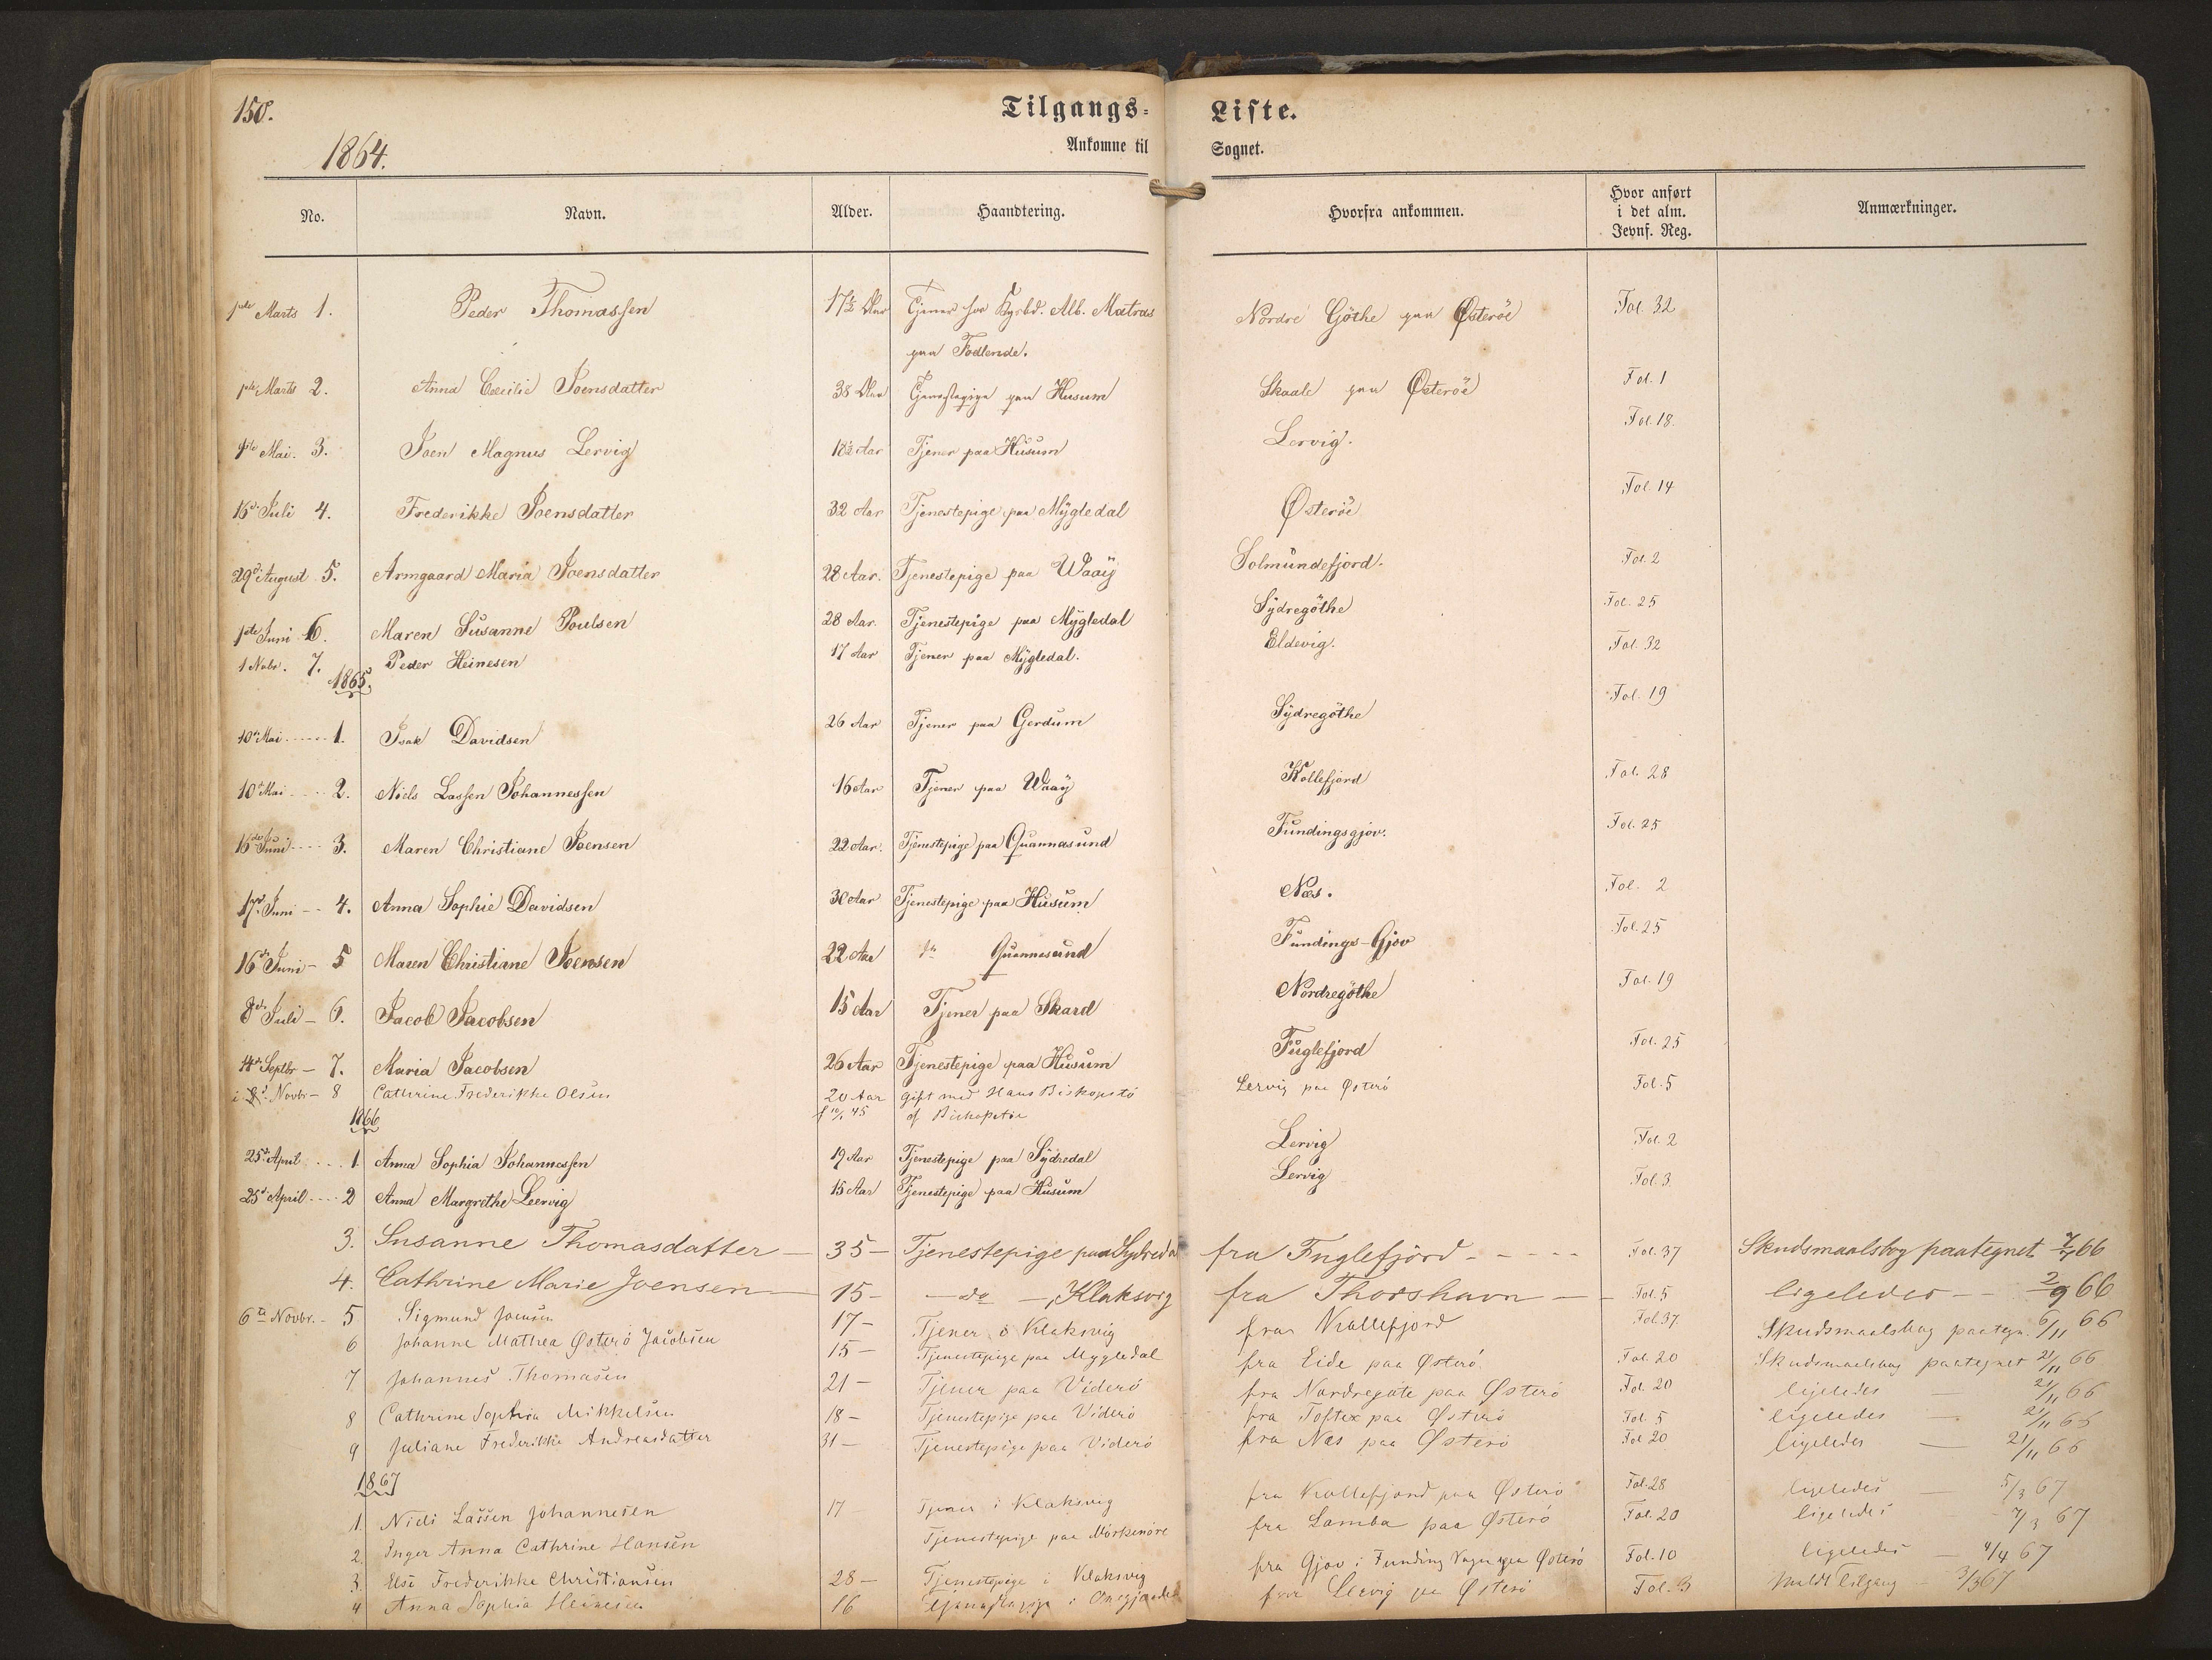 150.
Tilgangs-Liste.
1864.
Ankomne til Sognet.
No. Navn. Alder. Haandtering. Hvorfra ankommen. Hvor anført i det alm. Jevnf. Reg. Anmærkninger.
1ste Marts 1. Peder Thomassen 17½ Aar Tjener hos Kgsbd. Alb. Matras Nordre Göthe paa Østeröe Fol. 32
paa Fodlende.
1ste Marts 2. Anna Cecilie Joensdatter 38 Aar Tjenestepige paa Husum Skaale paa Østeröe Fol. 1
Mai. 3. Joen Magnus Lervig 18½ Aar Tjener paa Husum Lervig. Fol. 18.
16de Juli 4. Frederikke Joensdatter 32 Aar Tjenestepige paa Mygledal Østeröe Fol. 14
29de August 5. Armgaard Maria Joensdatter 28 Aar. Tjenestepige paa Waaÿ Solmundefjord. Fol. 2
1ste Juni 6. Maren Susanne Poulsen 28 Aar. Tjenestepige paa Mygledal Sydregöthe Fol. 25
1 Nobr. 7. Peder Heinesen 17 Aar Tjener paa Mygledal. Eldevig. Fol. 32
1865.
10de Mai 1. Isak Davidsen 26 Aar Tjener paa Gerdum Sydregöthe Fol. 19
10de Mai 2. Niels Lassen Johannessen 16 Aar Tjener paa Waaÿ Kollefjord Fol. 28
16de Juni 3. Maren Christiane Joensen 22 Aar. Tjenestepige paa Quannasund Fundingsgjov. Fol. 25
17de Juni 4. Anna Sophie Davidsen 30 Aar Tjenestepige paa Husum Næs. Fol. 2
16de Juni - 5 Maren Christiane Joensen 22 Aar do Quannesund Fundings-Gjov Fol. 25
8de Juli - 6. Jacob Jacobsen 15 Aar Tjener paa Skard Nordregöthe Fol. 19
14de Septbr - 7. Maria Jacobsen 26 Aar Tjenestepige paa Husum Fuglefjord Fol. 25
Novbr - 8 Cathrine Frederikke Olsen 20 Aar gift med Hans Biskopstö Lervig paa Østerö Fol. 5
f 10/1 45 af Biskopstöe
1866
25de April 1. Anna Sophia Johannessen 19 Aar Tjenestepige paa Sydredal Lervig Fol. 2
25de April 2 Anna Margrethe Leervig 15 Aar Tjenestepige paa Husum Lervig Fol. 3.
3. Susanne Thomasdatter - 35 - Tjenestepige paa Sydredal fra Fuglefjörd - Fol. 37 Skudsmaalsbog paategnet 7/7 66
4. Cathrine Marie Joensen - 15 - do -, Klaksvig fra Thorshavn - Fol. 5 ligeledes - 2/9 66
6te Novbr. - 5 Sigmund Joensen 17 - Tjener i Klaksvig fra Kollefjord Fol. 37. Skudsmaalsbog paategn. 6/11 66
6 Johanne Mathea Østerö Jacobsen 15 - Tjenestepige paa Mygledal fra Eide paa Østerö. Fol. 20 Skudsmaalsbog paategnet 21/11 66
7. Johannes Thomasen 21 - Tjener paa Viderö fra Nordregöte paa Østerö Fol. 20 ligeledes - 21/11 66
8 Cathrine Sophia Mikkelsen 18 - Tjenestepige paa Viderö fra Tofter paa Østerö Fol. 5 ligeledes - 21/11 66
9 Juliane Frederikke Andreasdatter 31 - Tjenestepige paa Viderö fra Næs paa Østerö Fol 20 ligeledes - 21/11 66
1867
1. Niels Lassen Johannesen 17 Tjener i Klaksvig fra Kollefjord paa Østerö Fol. 28 ligeledes - 5/3 67
2. Inger Anna Cathrine Hansen Tjenestepige paa Mörkenöre fra Lamba paa Østerö Fol. 20 ligeledes - 7/3 67
3. Else Frederikke Christiansen 28 - Tjenestepige i Klaksvig fra Gjov i Funding Østerö Fol. 10 ligeledes - 4/4 67
4 Anna Sophia Heinesen 16 Tjenestepige i fra Lervig paa Østerö Fol. 3 meldt tilgang - 3/3 67